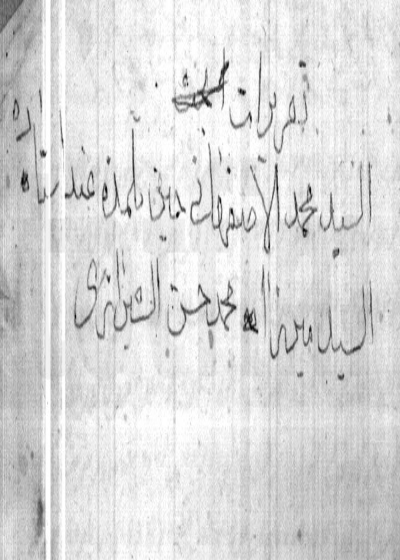 تقريرات
السيد محمد الأصفهاني حين تلمذه عند استاده
السيد ميرزا محمد حسن الشيرازي